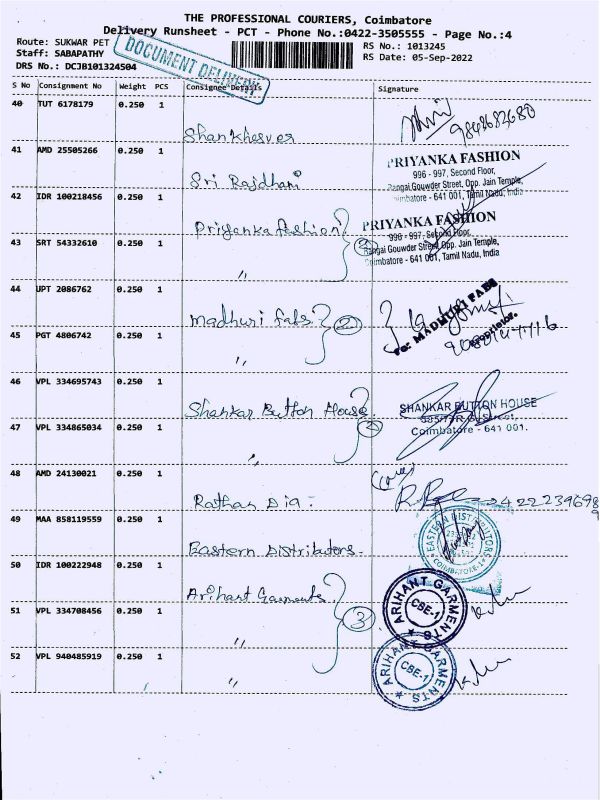 THE PROFESSIONAL COURIERS, Coimbatore
Delivery Runsheet - PCT - Phone No.:0422-3505555 - Page No.:4
Route: SUKWAR PET
Staff: SABAPATHY
DRS No.: DCJB101324504
DOCUMENT DELIVERY
RS No.: 1013245
RS Date: 05-Sep-2022
S No Consignment No Weight PCS Consignee Details Signature
40 TUT 6178179 0.250 1
Shankhesver
9843683680
41 AMD 25505266 0.250 1
Sri Rajdhani
PRIYANKA FASHION
996 - 997, Second Floor,
Rangai Gouwder Street, Opp. Jain Temple,
Coimbatore - 641 001, Tamil Nadu, India
42 IDR 100218456 0.250 1
Priyanka fashion
2
PRIYANKA FASHION
996 - 997, Second Floor,
Rangai Gouwder Street, Opp. Jain Temple,
Coimbatore - 641 001, Tamil Nadu, India
43 SRT 54332610 0.250 1
"
44 UPT 2086762 0.250 1
madhuri fabs
2
For MADHURI FABS
Proprietor.
45 PGT 4806742 0.250 1
"
46 VPL 334695743 0.250 1
Shankar Button House
2
SHANKAR BUTTON HOUSE
Coimbatore - 641 001.
47 VPL 334865034 0.250 1
"
48 AMD 24130021 0.250 1
Rathan Dia -
49 MAA 858119559 0.250 1
Eastern Distributors.
EASTERN DISTRIBUTORS
COIMBATORE-1
50 IDR 100222948 0.250 1
Arihant Garments
3
ARIHANT GARMENTS
CBE-1
51 VPL 334708456 0.250 1
"
52 VPL 940485919 0.250 1
"
ARIHANT GARMENTS
CBE-1